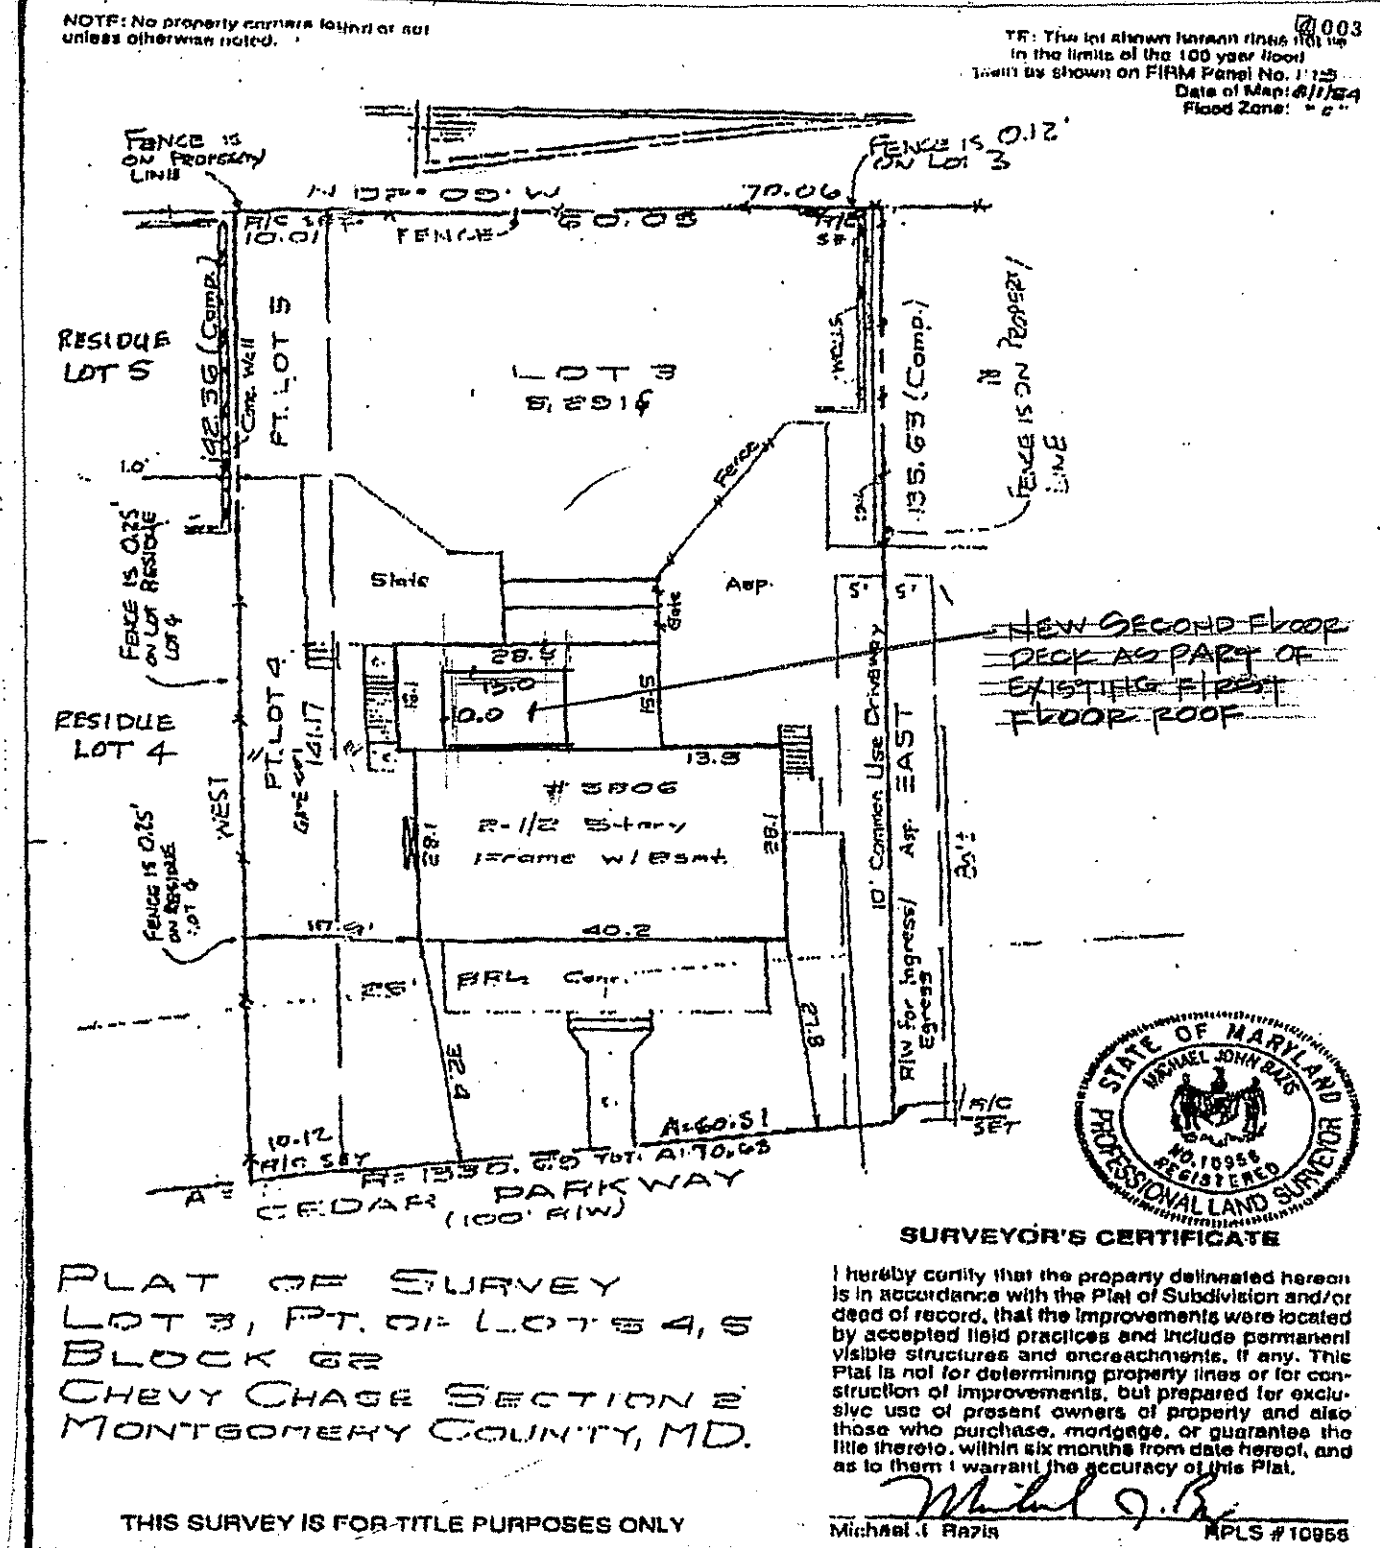 003
NOTE: No property corners found or set
unless otherwise noted.
TE: The lot shown hereon does not lie
in the limits of the 100 year flood
plain as shown on FIRM Panel No.
Date of Map: 8/1/84
Flood Zone: "C"
FENCE IS
ON PROPERTY
LINE
FENCE IS 0.12'
ON LOT 3
N 02° 00' W
70.06
R/C SET
10.01
FENCE
60.05
R/C
SET
RESIDUE
LOT 5
142.36 (Comp.)
Conc. Wall
PT. LOT 5
LOT 3
135.63 (Comp.)
FENCE IS ON PROPERTY
LINE
1.0'
Fence
FENCE IS 0.25'
ON LOT RESIDUE
LOT 4
Slate
Gate
Asp.
5'
5'
NEW SECOND FLOOR
DECK AS PART OF
EXISTING FIRST
FLOOR ROOF
28.2
13.0
15.5
RESIDUE
LOT 4
PT. LOT 4
141.17
13.9
10' Common Use Driveway
EAST
Asp.
WEST
# 5806
2-1/2 Story
Frame w/ Bsmt.
28.1
28.1
FENCE IS 0.25'
ON RESIDUE
LOT 4
17.9'
40.2
R/W for Ingress/
Egress
20'±
25'
BRL
Conc.
32.4
27.8
10.12
R/C SET
A=60.51
R/C
SET
A=
R= 1330.69 TOT. A=70.63
CEDAR PARKWAY
(100' R/W)
STATE OF MARYLAND
MICHAEL JOHN BAZIS
NO. 10956
REGISTERED
PROFESSIONAL LAND SURVEYOR
PLAT OF SURVEY
LOT 3, PT. OF LOTS 4, 5
BLOCK 62
CHEVY CHASE SECTION 2
MONTGOMERY COUNTY, MD.
SURVEYOR'S CERTIFICATE
I hereby certify that the property delineated hereon
is in accordance with the Plat of Subdivision and/or
deed of record, that the improvements were located
by accepted field practices and include permanent
visible structures and encroachments, if any. This
Plat is not for determining property lines or for con-
struction of improvements, but prepared for exclu-
sive use of present owners of property and also
those who purchase, mortgage, or guarantee the
title thereto, within six months from date hereof, and
as to them I warrant the accuracy of this Plat.
Michael J. Bazis
THIS SURVEY IS FOR TITLE PURPOSES ONLY
Michael J. Bazis RPLS #10956